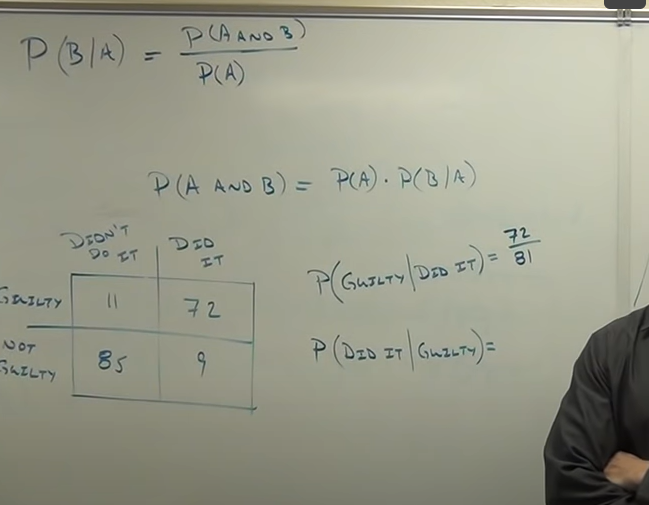 P(B/A) = P(A AND B) / P(A)
P(A AND B) = P(A) · P(B/A)
DIDN'T DO IT
DID IT
GUILTY 11 72
NOT GUILTY 85 9
P(GUILTY|DID IT) = 72/81
P(DID IT|GUILTY) =